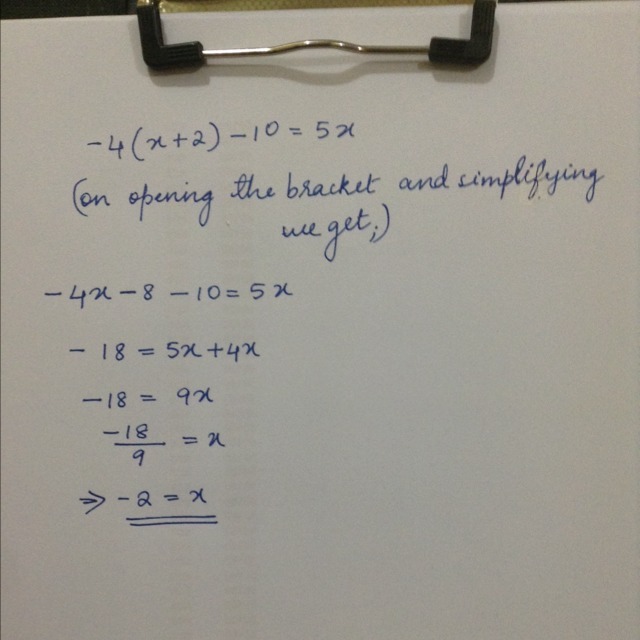 -4(x+2)-10=5x
(on opening the bracket and simplifying
we get;)
-4x-8-10=5x
-18=5x+4x
-18=9x
-18/9=x
⇒ -2=x